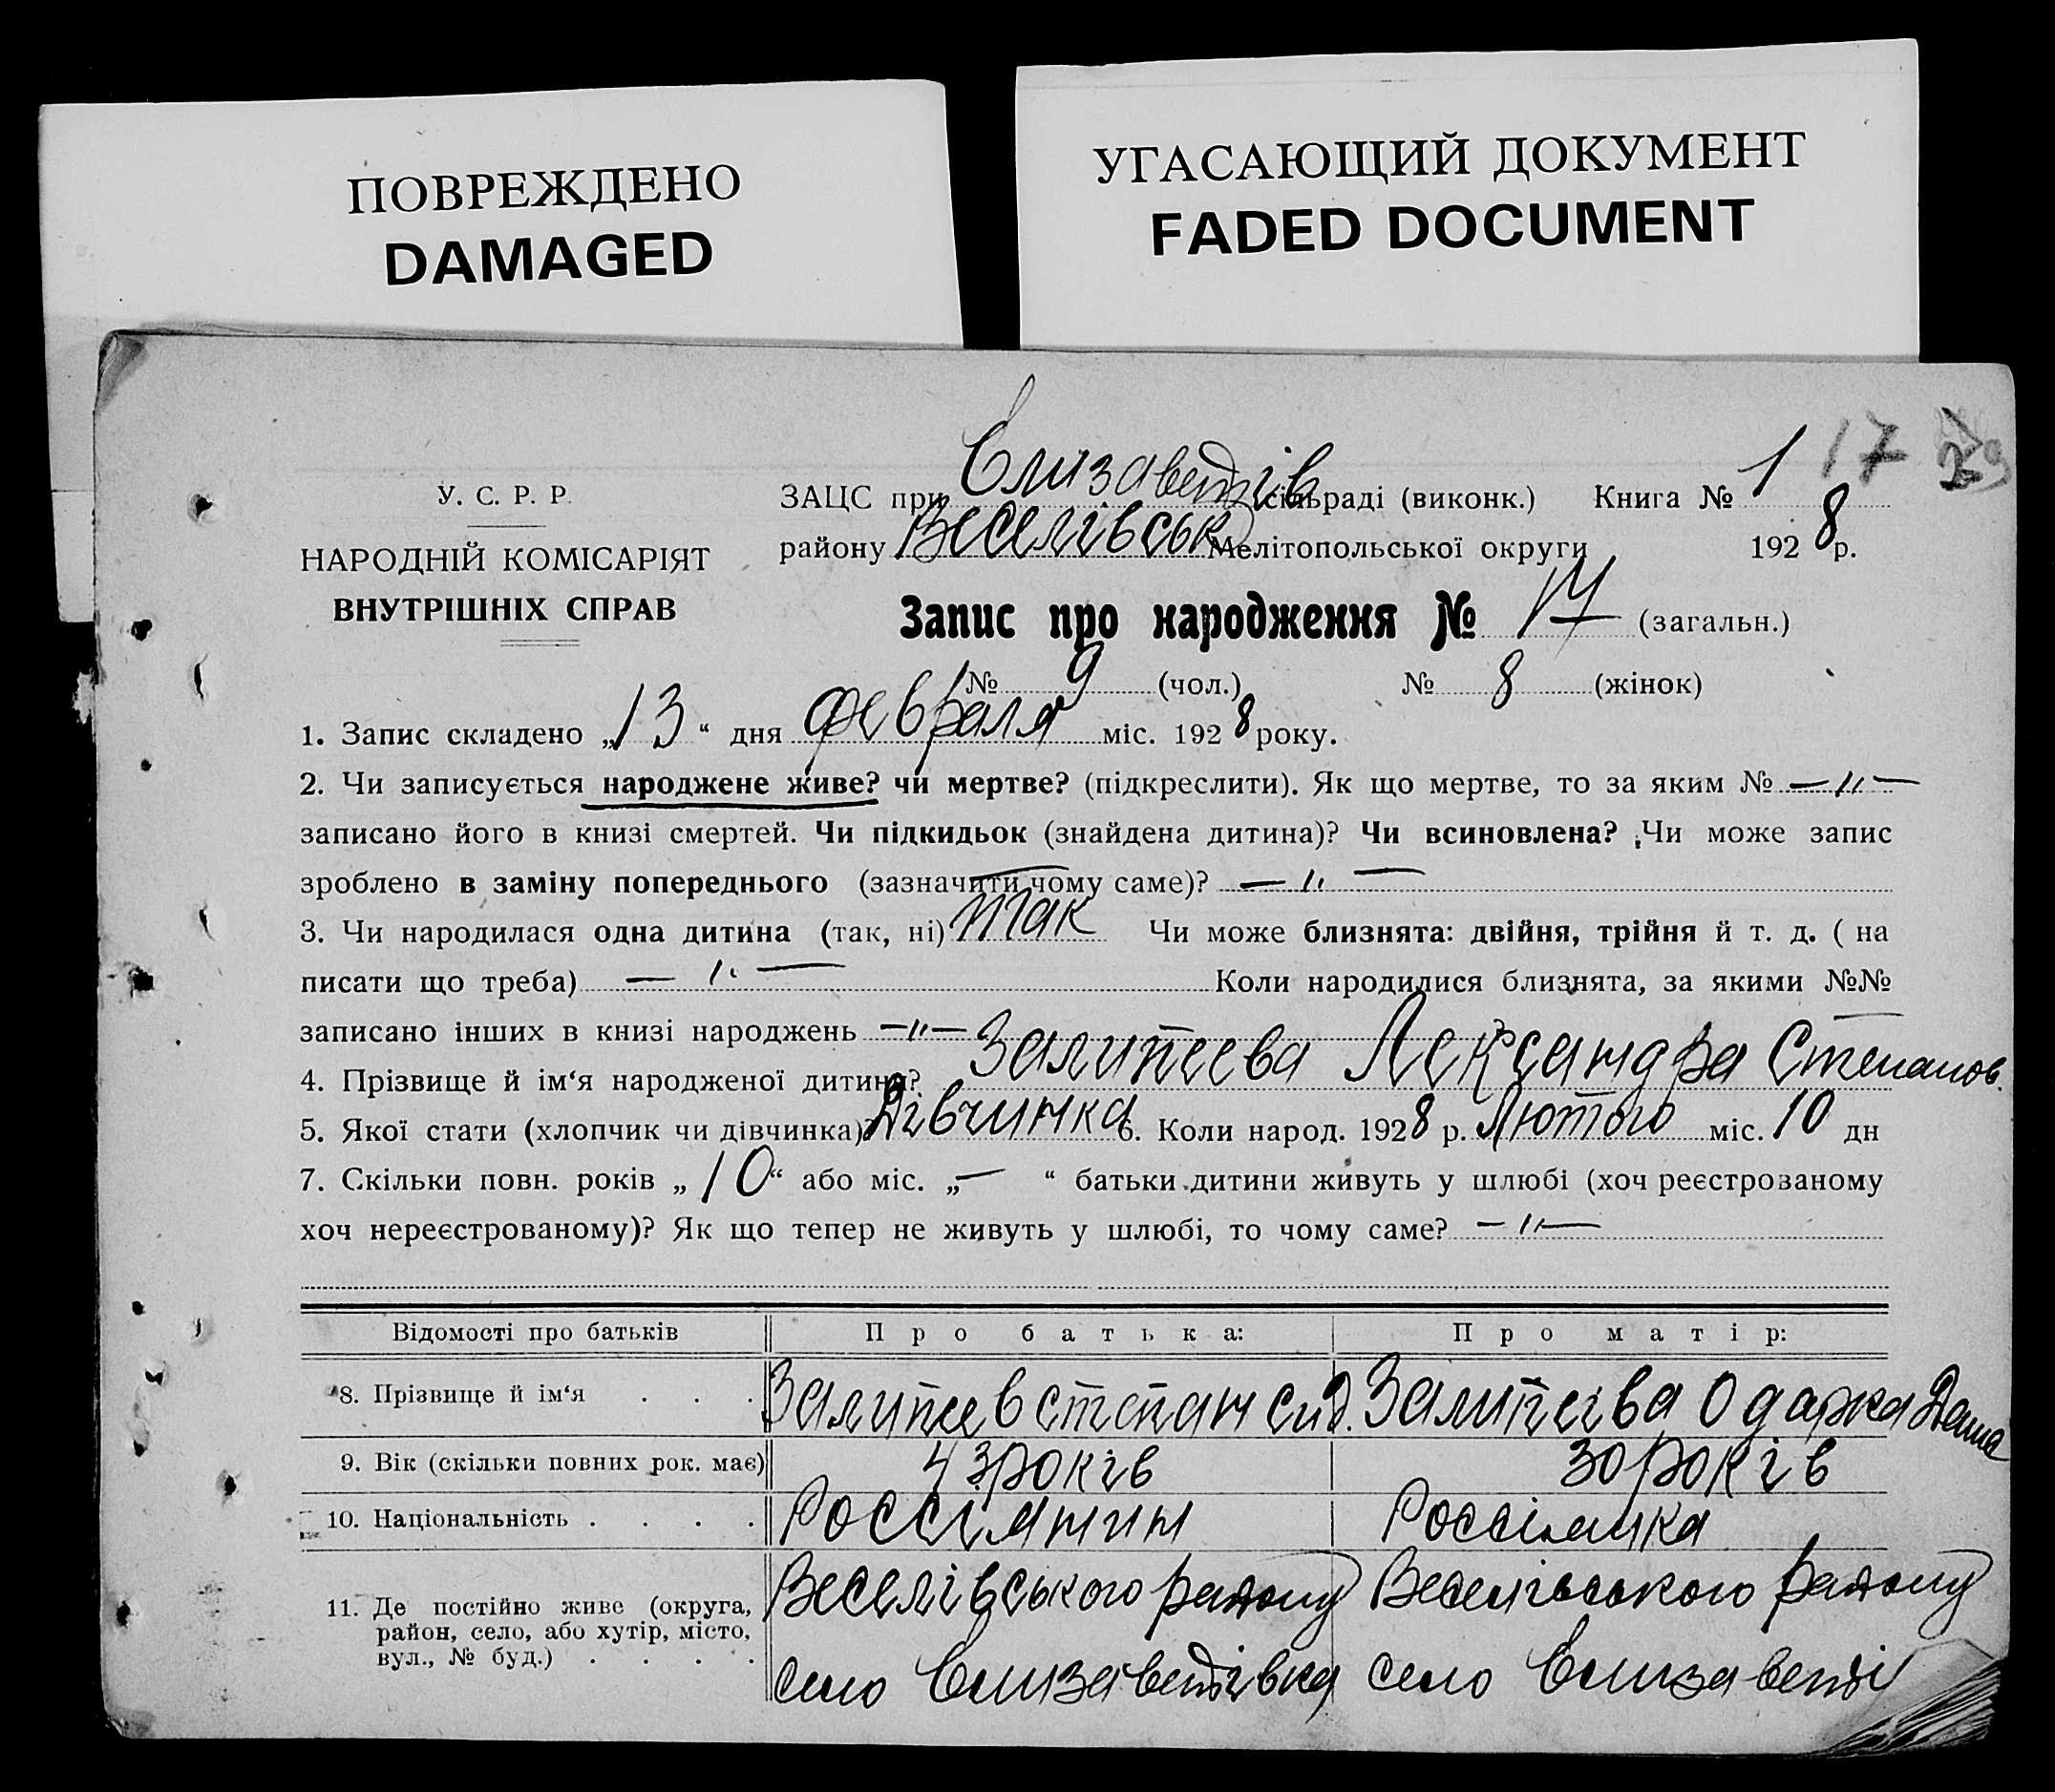 ПОВРЕЖДЕНО
DAMAGED
УГАСАЮЩИЙ ДОКУМЕНТ
FADED DOCUMENT
17
У. С. Р. Р.
НАРОДНІЙ КОМІСАРІЯТ
ВНУТРІШНІХ СПРАВ
ЗАЦС при Єлизаветів сільраді (виконк.) Книга № 1
району Веселівськ Мелітопольської округи 1928 р.
Запис про народження № 17 (загальн.)
№ 9 (чол.) № 8 (жінок)
1. Запис складено „13“ дня февраля міс. 1928 року.
2. Чи записується народжене живе? чи мертве? (підкреслити). Як що мертве, то за яким № —"—
записано його в книзі смертей. Чи підкидьок (знайдена дитина)? Чи всиновлена? Чи може запис
зроблено в заміну попереднього (зазначити чому саме)? —"—
3. Чи народилася одна дитина (так, ні) так Чи може близнята: двійня, трійня й т. д. ( на
писати що треба) —"— Коли народилися близнята, за якими №№
записано інших в книзі народжень —"—
4. Прізвище й ім‘я народженої дитини? Залипеева Лександра Степанов.
5. Якої стати (хлопчик чи дівчинка)? Дівчинка 6. Коли народ. 1928 р. Лютого міс. 10 дн
7. Скільки повн. років „10“ або міс. „—“ батьки дитини живуть у шлюбі (хоч реєстрованому
хоч нереєстрованому)? Як що тепер не живуть у шлюбі, то чому саме? —"—
Відомості про батьків Про батька: Про матір:
8. Прізвище й ім‘я . . . Залипеев Степан Сид. Залипеєва Одарка
9. Вік (скільки повних рок. має) 43 років 30 років
10. Національність . . . . Россіянин Россіянка
11. Де постійно живе (округа,
район, село, або хутір, місто,
вул., № буд.) . . . .
Веселівського району
село Єлизаветівка
Веселівського району
село Єлизаветі